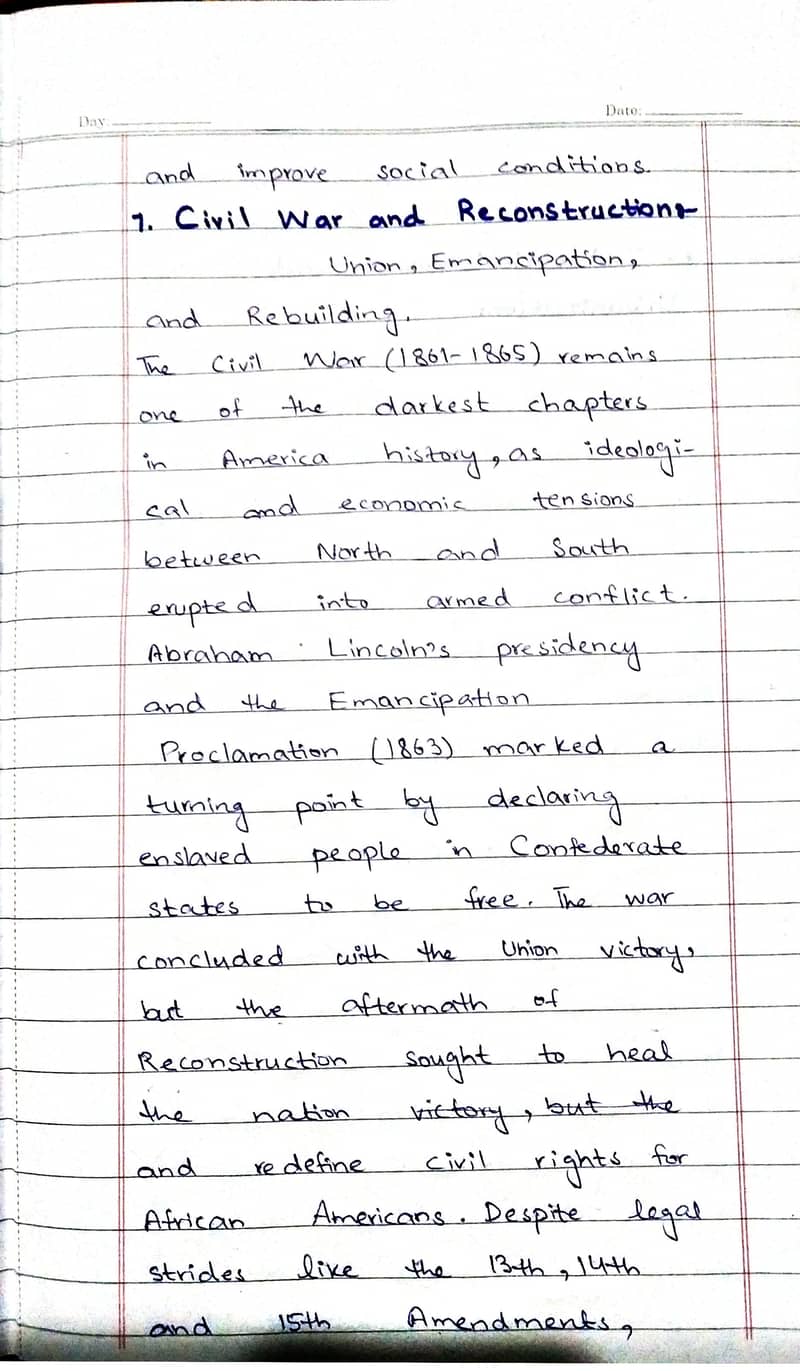 Day:
Date:
and improve social conditions.
7. Civil War and Reconstruction:-
Union, Emancipation,
and Rebuilding.
The Civil War (1861-1865) remains
one of the darkest chapters
in America history, as ideologi-
cal and economic tensions
between North and South
erupted into armed conflict.
Abraham Lincoln's presidency
and the Emancipation
Proclamation (1863) marked a
turning point by declaring
enslaved people in Confederate
states to be free. The war
concluded with the Union victory,
but the aftermath of
Reconstruction sought to heal
the nation victory, but the
and redefine civil rights for
African Americans. Despite legal
strides like the 13th, 14th
and 15th Amendments,